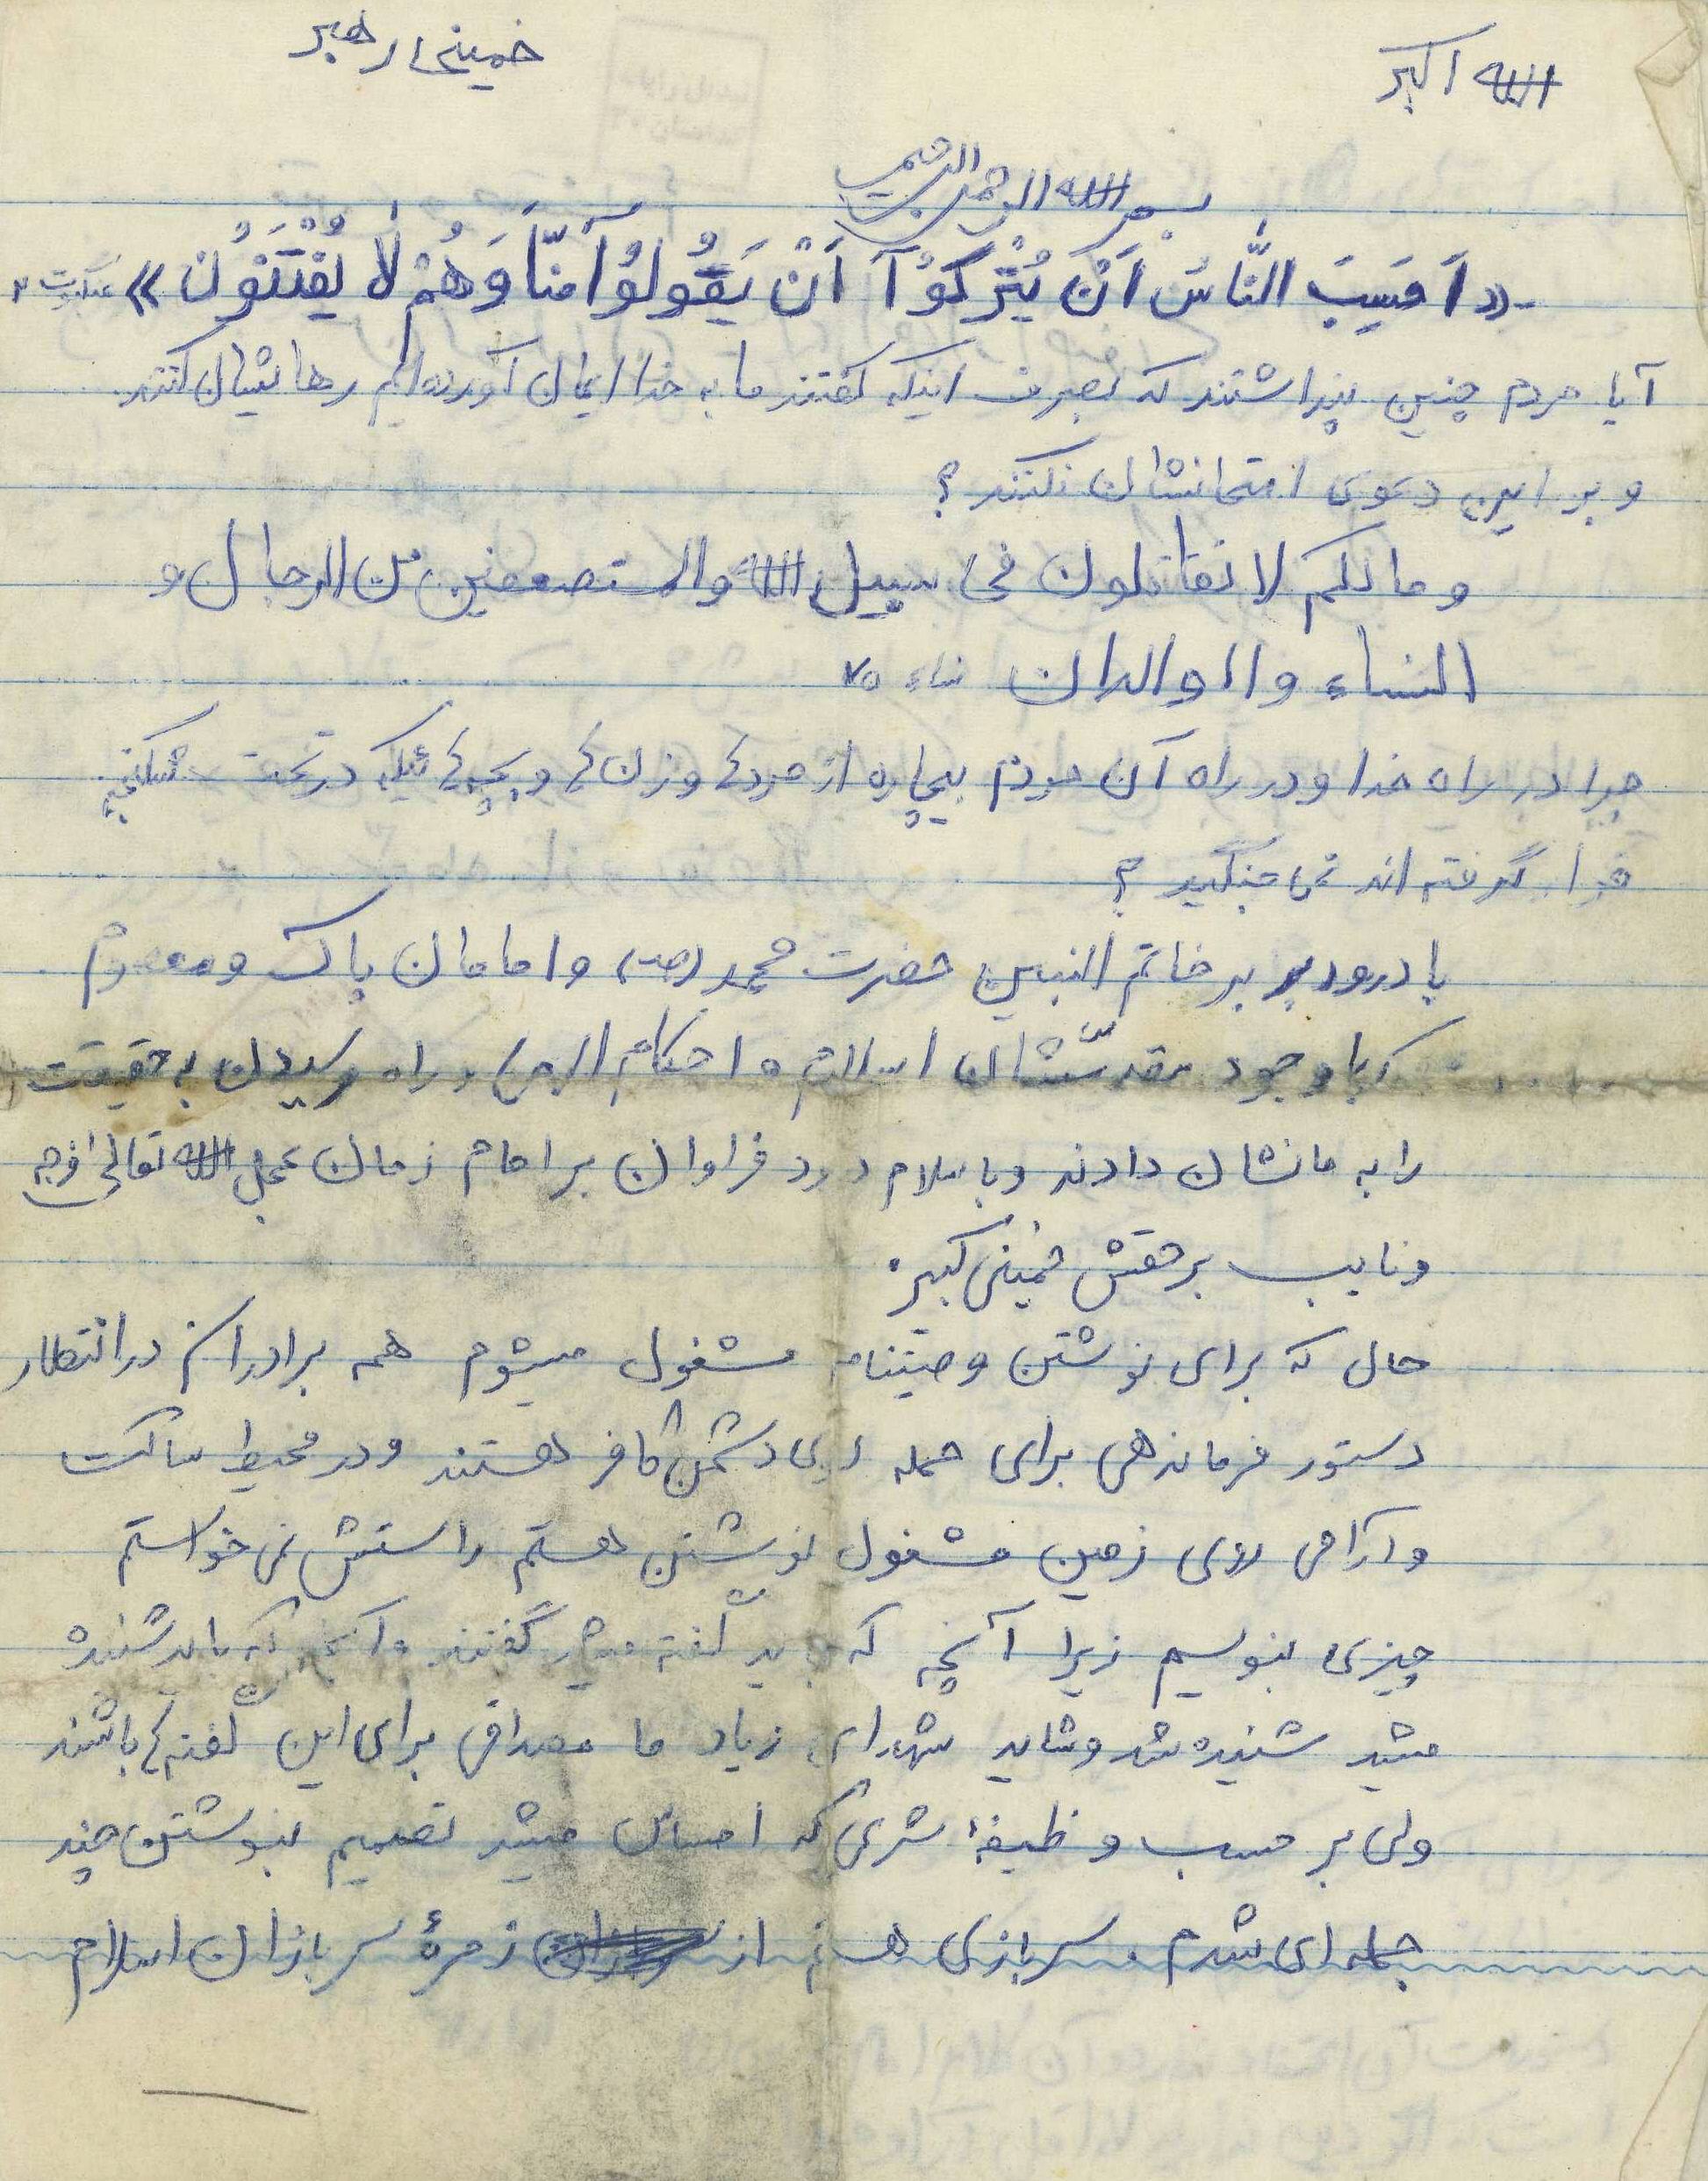 الله اکبر
خمینی رهبر
بسم الله الرحمن الرحیم
«اَحَسِبَ النّاسُ اَنْ یُتْرَکُوْآ اَنْ یَقُولُوْآ مَنّا وَهُمْ لا یُفْتَنَوُن» عنکبوت ۲
آیا مردم چنین پنداشتند که بصرف اینکه گفتند ما به خدا ایمان آورده‌ایم رهایشان کنند
و بر این دعوی امتحانشان نکنند؟
و مالکم لا تقاتلون فی سبیل الله والمستضعفین من الرجال و
النساء والوالدان نساء ۷۵
چرا در راه خدا و در راه آن مردم بیچاره از مردها و زن‌ها و بچه‌هائیکه در تحت شکنجه
قرار گرفته اند نمی جنگید؟
با درود بر بر خاتم النبین حضرت محمد (ص) و امامان پاک و معصوم
که با وجود مقدّسشان اسلام و احکام الهی و راه رسیدن به حقیقت
را به ما نشان دادند و با سلام درود فراوان بر امام زمان عجل الله تعالی فرجه
و نایب برحقش خمینی کبیر.
حال که برای نوشتن وصیتنامه مشغول میشوم همه برادرانم در انتظار
دستور فرماندهی برای حمله روی دشمن کافر هستند و در محیط ساکت
و آرامی روی زمین مشغول نوشتن هستم راستش نمی خواستم
چیزی بنویسم زیرا آنچه که باید گفته میشد گفتند و آنچه که باید شنیده
میشد شنیده شد و شاید شهدای زیاد ما مصداقی برای این گفته‌ها باشند
ولی بر حسب وظیفهٔ شرعی که احساس میشد تصمیم بنوشتن چند
جمله ای شدم. سربازی هستم از زمرهٔ سربازان اسلام